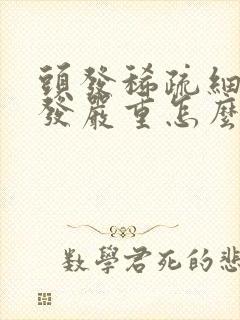 頭發稀疏細
發嚴重怎麼
數學君死的悲